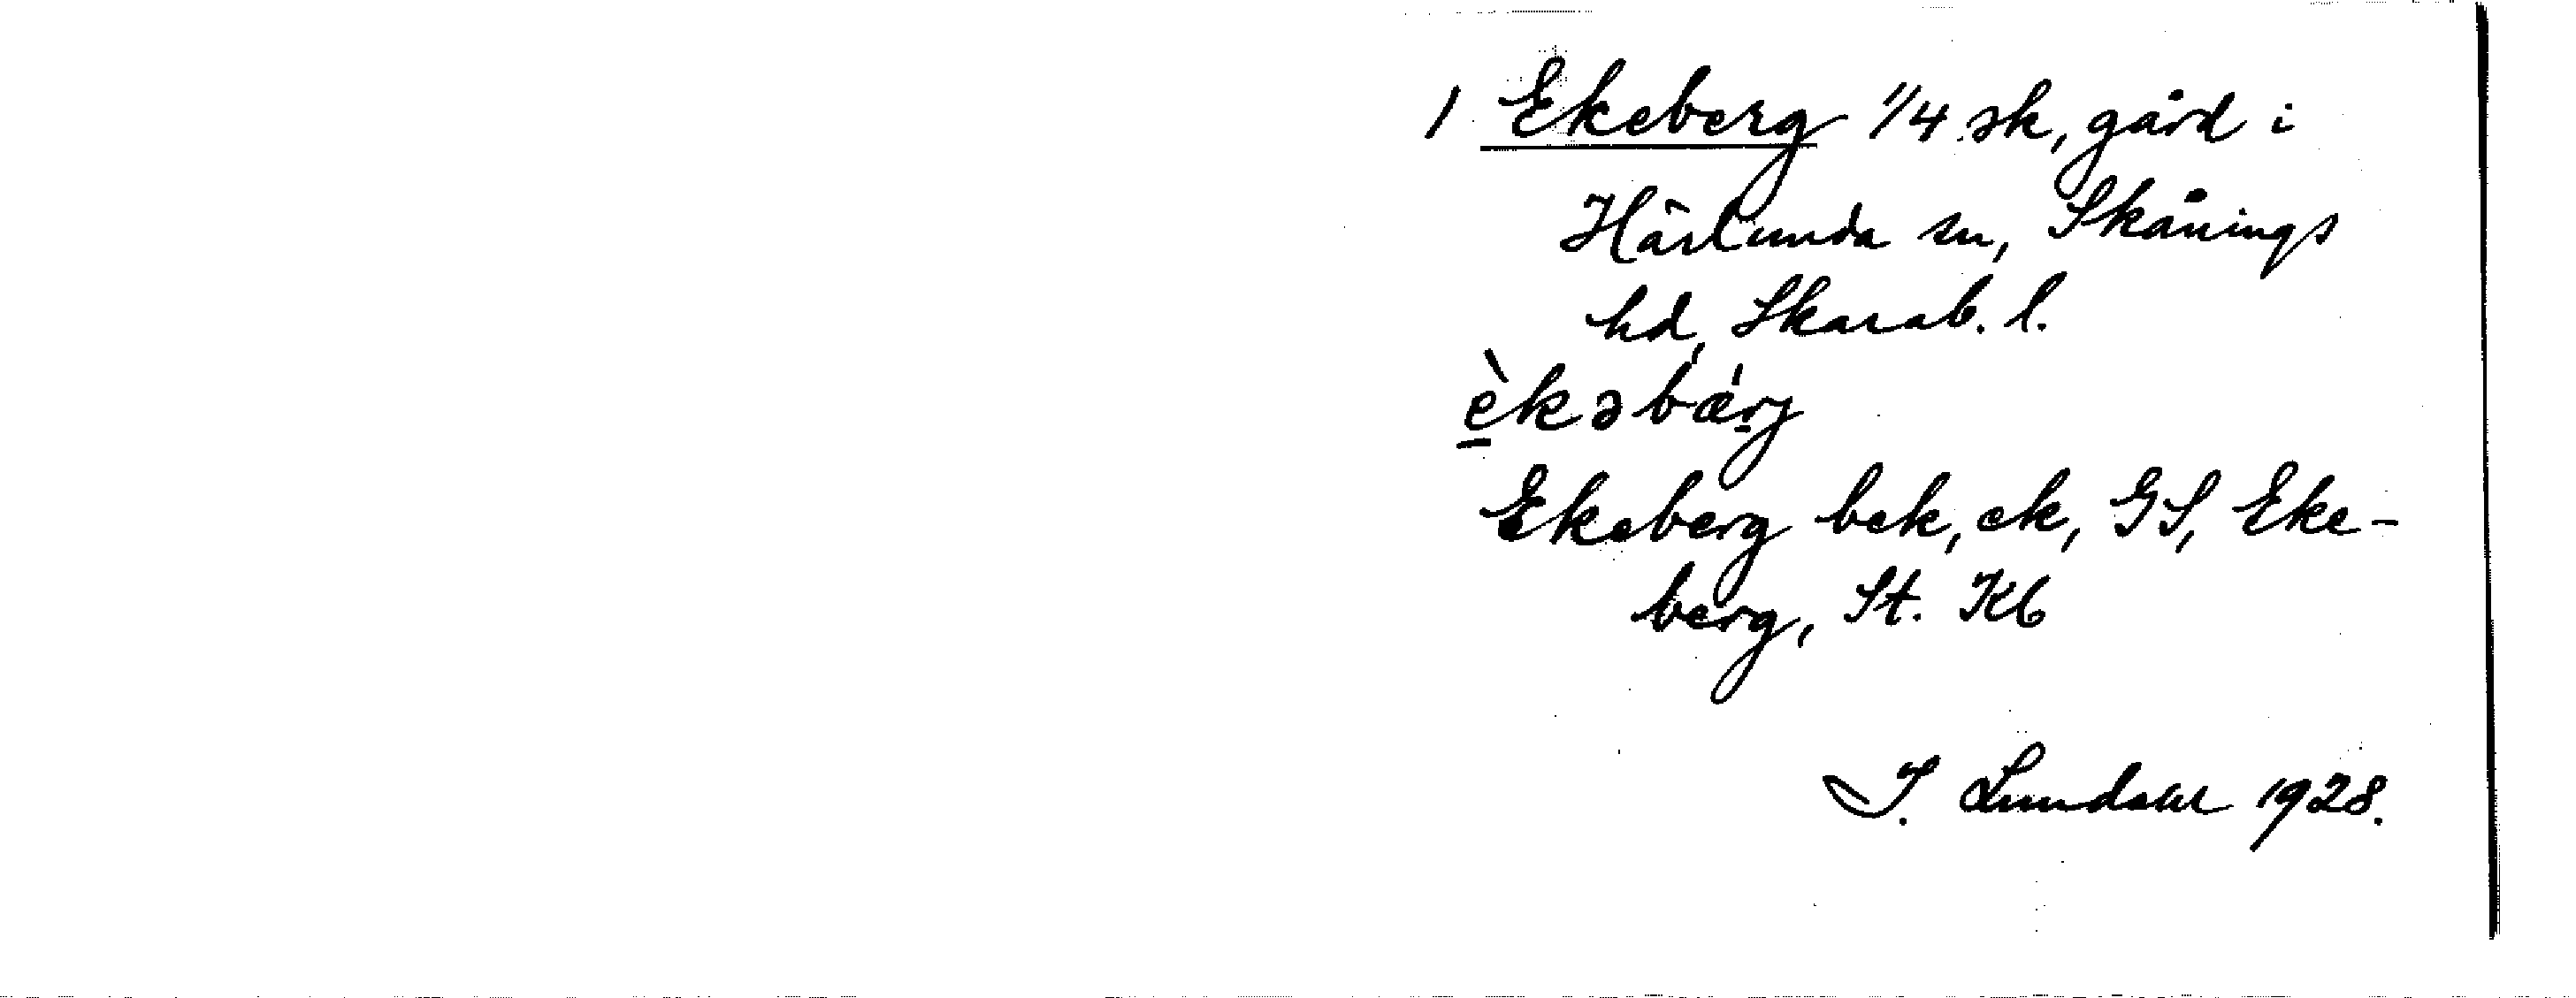 1 Ekeberg 1/4 sk, gård i
Härlunda sn, Skånings
hd, Skarab. l.
è̱kəbǽrj
Ekeberg bek, ek, GS, Eke-
berg, St. Kb
I. Lundahl 1928.